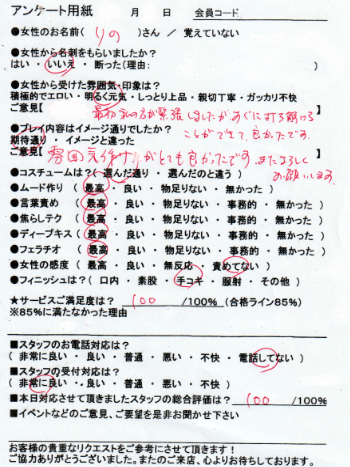 アンケート用紙　　月　　日　　会員コード
●女性のお名前( りの )さん / 覚えていない
●女性から名刺をもらいましたか？
はい ・ いいえ ・ 断った(理由:　　)
●女性から受けた雰囲気・印象は？
積極的でエロい・明るく元気・しっとり上品・親切丁寧・ガッカリ不快
ご意見【最初私の方が緊張しましたがすぐに打ち解ける】
ことができて良かったです。
●プレイ内容はイメージ通りでしたか？
期待通り ・ イメージと違った
ご意見【雰囲気作りがとても良かったです。またよろしく】
お願いします。
●コスチュームは？( 選んだ通り ・ 選んだのと違う )
●ムード作り ( 最高 ・ 良い ・ 物足りない ・ 無かった )
●言葉責め ( 最高 ・ 良い ・ 物足りない ・ 事務的 ・ 無かった )
●焦らしテク ( 最高 ・ 良い ・ 物足りない ・ 事務的 ・ 無かった )
●ディープキス ( 最高 ・ 良い ・ 物足りない ・ 事務的 ・ 無かった )
●フェラチオ ( 最高 ・ 良い ・ 物足りない ・ 事務的 ・ 無かった )
●女性の感度 ( 最高 ・ 良い ・ 無反応 ・ 責めてない )
●フィニッシュは？ ( 口内 ・ 素股 ・ 手コキ ・ 服射 ・ その他 )
★サービスご満足度は？ 100 /100% (合格ライン85%)
※85%に満たなかった理由
■スタッフのお電話対応は？
( 非常に良い ・ 良い ・ 普通 ・ 悪い ・ 不快 ・ 電話してない )
■スタッフの受付対応は？
( 非常に良い ・ 良い ・ 普通 ・ 悪い ・ 不快 )
■本日対応させて頂きましたスタッフの総合評価は？ 100 /100%
■イベントなどのご意見、ご要望を是非お聞かせ下さい
お客様の貴重なリクエストをご参考にさせて頂きます！
ご協力ありがとうございました。またのご来店、心よりお待ちしております。